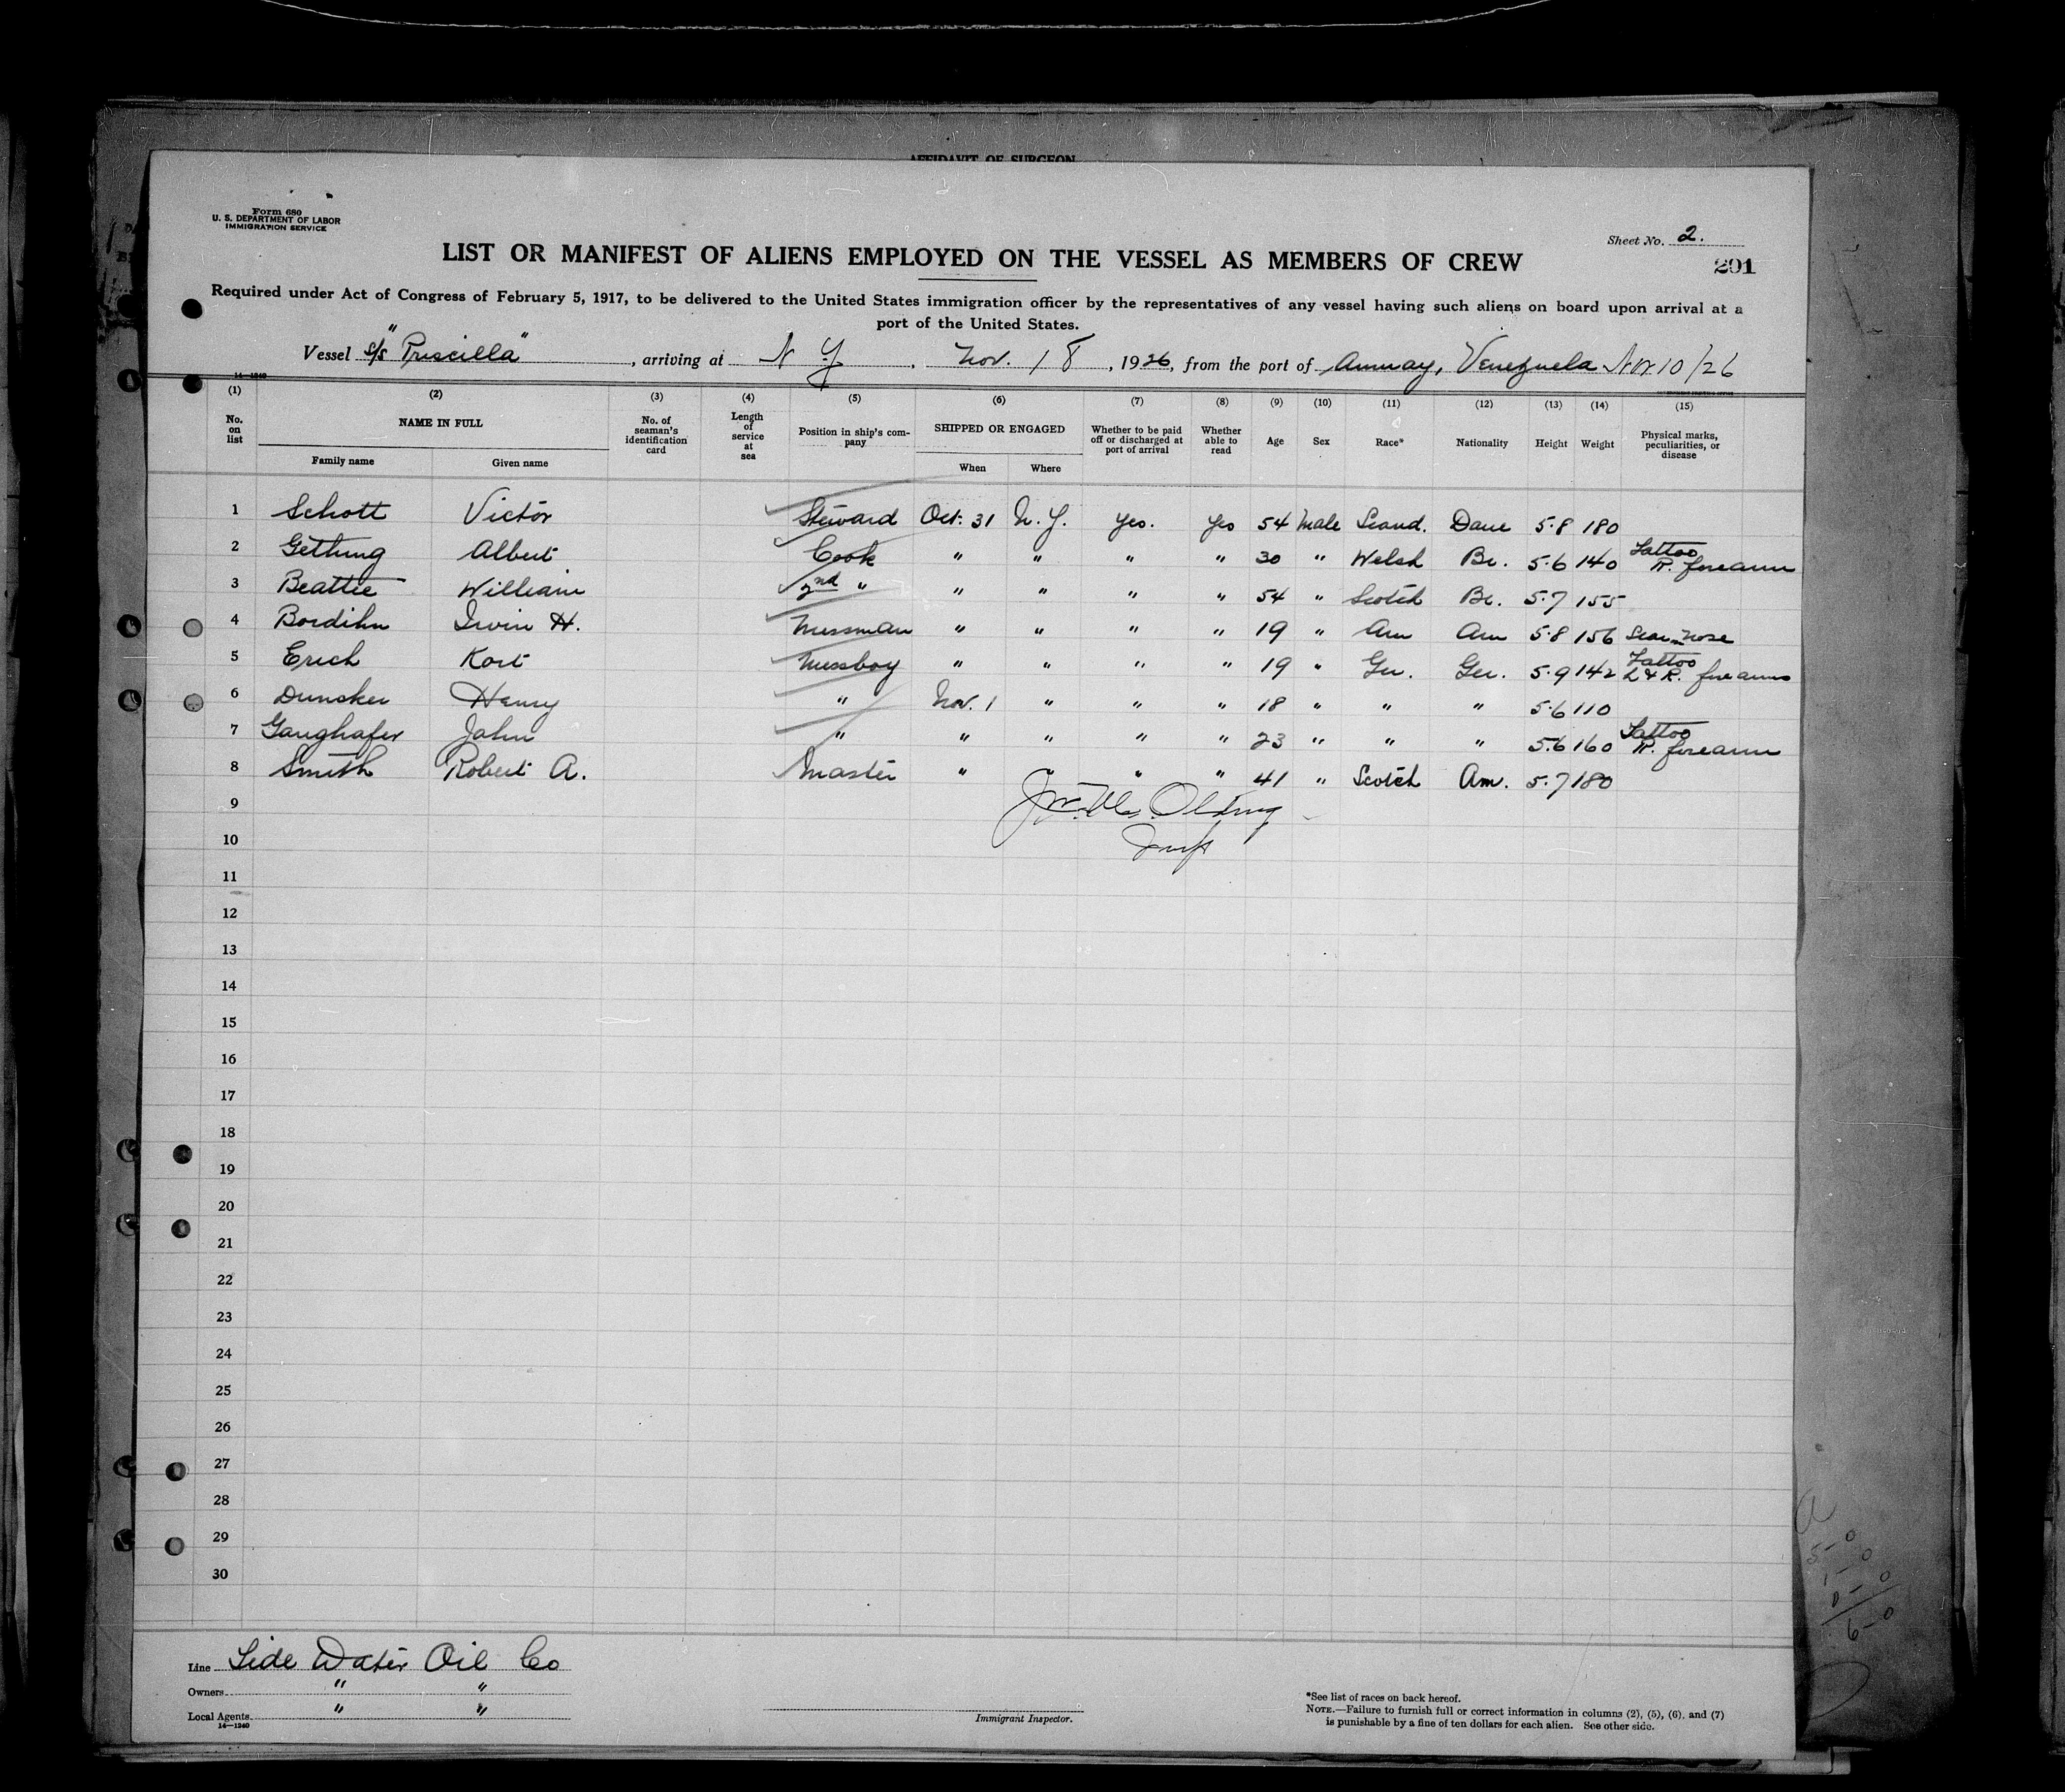 AFFIDAVIT OF SURGEON
Form 680
U. S. DEPARTMENT OF LABOR
IMMIGRATION SERVICE
Sheet No. 2.
LIST OR MANIFEST OF ALIENS EMPLOYED ON THE VESSEL AS MEMBERS OF CREW
201
Required under Act of Congress of February 5, 1917, to be delivered to the United States immigration officer by the representatives of any vessel having such aliens on board upon arrival at a
port of the United States.
Vessel s/s "Priscilla", arriving at N Y, Nov. 18, 1926, from the port of Amuay, Venezuela Nov 10/26
14—1240
(1) (2) (3) (4) (5) (6) (7) (8) (9) (10) (11) (12) (13) (14) (15)
No. on list NAME IN FULL No. of seaman's identification card Length of service at sea Position in ship's company SHIPPED OR ENGAGED Whether to be paid off or discharged at port of arrival Whether able to read Age Sex Race* Nationality Height Weight Physical marks, peculiarities, or disease
Family name Given name When Where
1 Schott Victor Steward Oct. 31 N. Y. Yes. Yes 54 Male Scand. Dane 5·8 180
2 Gething Albert Cook " " " " 30 " Welsh Br. 5·6 140 Tattoo R. forearm
3 Beattie William 2nd " " " " " 54 " Scotch Br. 5·7 155
4 Bordihn Irwin H. Messman " " " " 19 " Am Am 5·8 156 Scar Nose
5 Erich Kort Messboy " " " " 19 " Ger. Ger. 5·9 142 Tattoo L & R. forearms
6 Dunsker Henry " Nov. 1 " " " 18 " " " 5·6 110
7 Ganghafer John " " " " " 23 " " " 5·6 160 Tattoo R. forearm
8 Smith Robert A. Master " " " " 41 " Scotch Am. 5·7 180
9
10
11
12
13
14
15
16
17
18
19
20
21
22
23
24
25
26
27
28
29
30
Line Tide Water Oil Co
Owners " "
Local Agents " "
14—1240
Immigrant Inspector.
*See list of races on back hereof.
NOTE.—Failure to furnish full or correct information in columns (2), (5), (6), and (7)
is punishable by a fine of ten dollars for each alien. See other side.